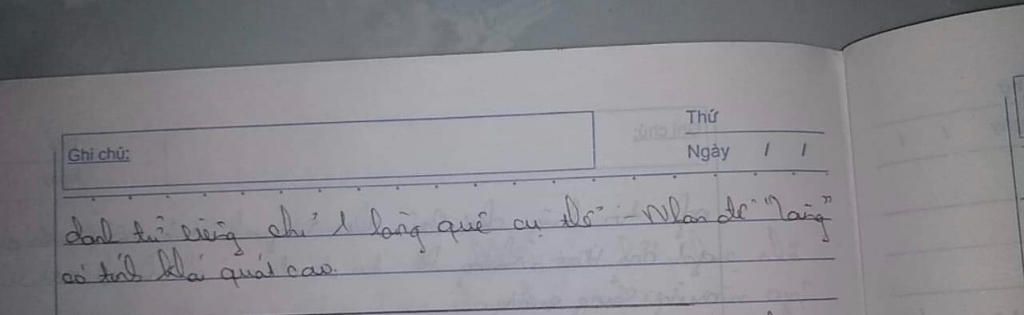 Thứ
Ghi chú:
Ngày / /
danh từ riêng chỉ 1 làng quê cụ thể - Nhan đề "Làng"
có tính khái quát cao.